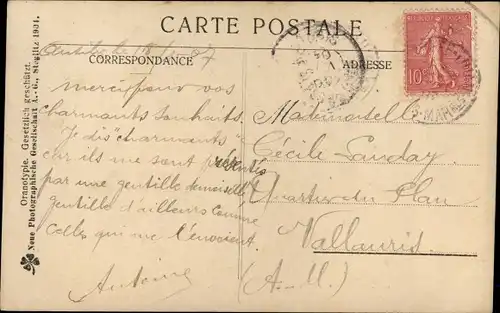 CARTE POSTALE
CORRESPONDANCE
ADRESSE
Merci pour vos
charmants souhaits.
Je dis "charmants"
car ils me sont présentés
par une gentille demoiselle,
gentille d'ailleurs comme
celles qui me l'envoient.
Antoine
Mademoiselle
Cécile
Quartier du Plan
Vallauris
(A.-M.)
10
Oranotypie. Gesetzlich geschützt.
Neue Photographische Gesellschaft A.-G., Steglitz 1904.